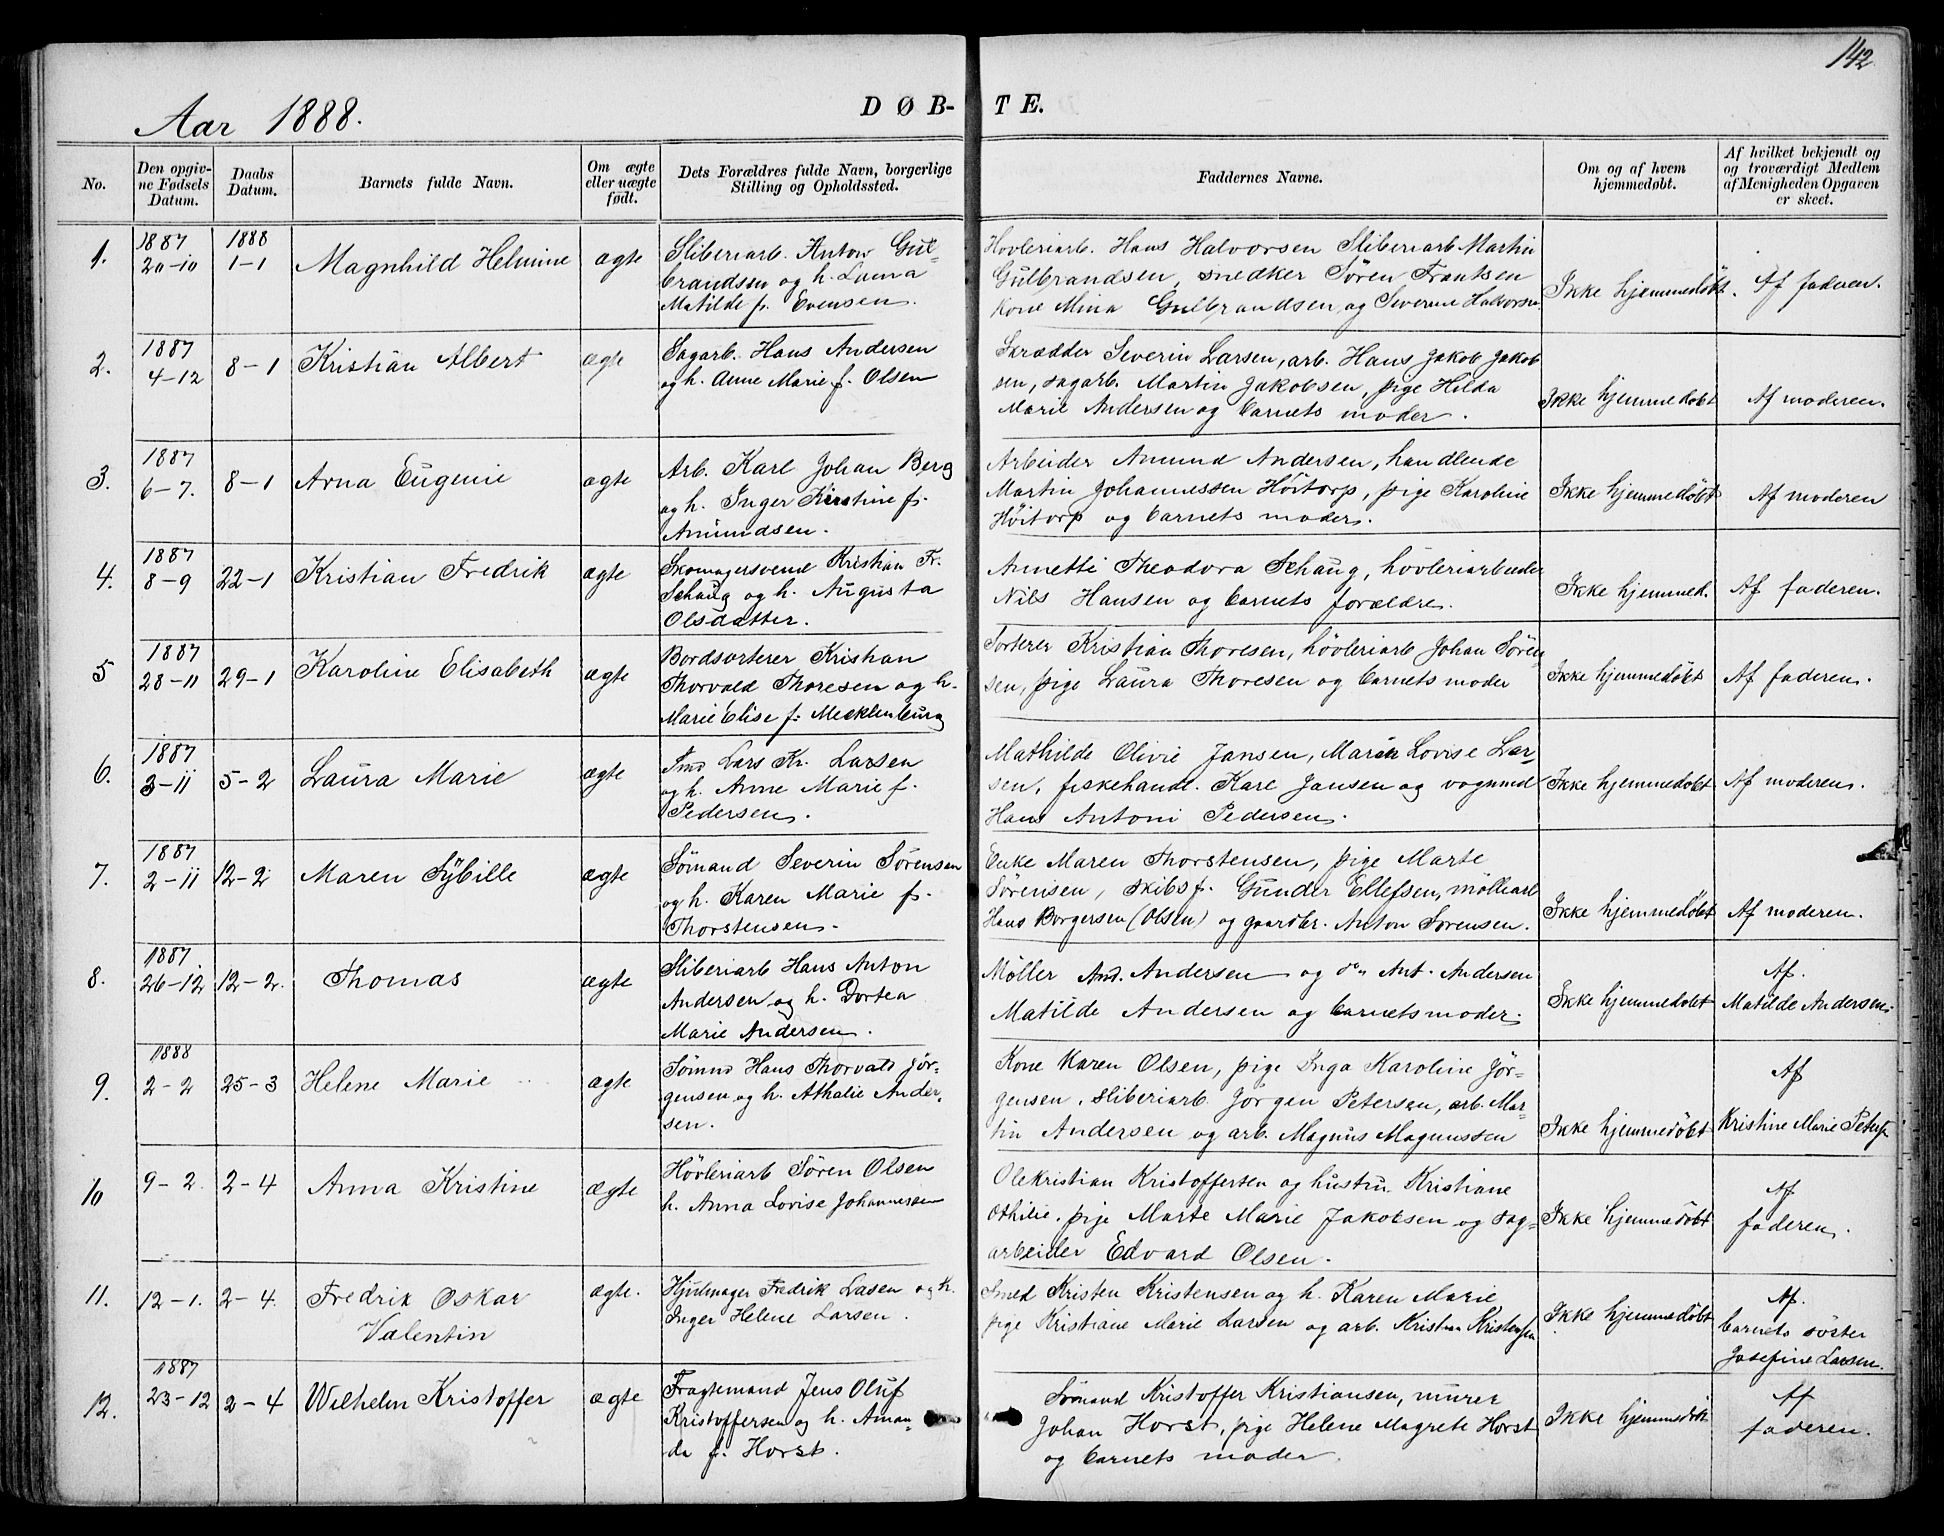 142
Aar 1888.
DØB-TE.
No.
Den opgiv-
ne Fødsels
Datum.
Daabs
Datum.
Barnets fulde Navn.
Om ægte
eller uægte
født.
Dets Forældres fulde Navn, borgerlige
Stilling og Opholdssted.
Faddernes Navne.
Om og af hvem
hjemmedøbt.
Af hvilket bekjendt og
og troværdigt Medlem
af Menigheden Opgaven
er skeet.
1.
1887
20-10
1888
1-1
Magnhild Helmine
ægte
Sliberiarb. Anton Gul-
brandsen og h. Laura
Matilde f. Evensen.
Hovleriarb. Hans Halvorsen Sliberiarb Martin
Gulbrandsen, snedker Søren Frantsen
kone Mina Gulbrandsen og Severine Halvorsen
Ikke hjemmedøbt.
Af faderen.
2.
1887
4-12
8-1
Kristian Albert
ægte
Sagarb. Hans Andersen
og h. Anne Marie f. Olsen
Skrædder Severin Larsen, arb. Hans Jakob Jakob
sen, sagarb. Martin Jakobsen, pige Hilda
Marie Andersen og barnets moder.
Ikke hjemmedøbt
Af moderen.
3.
1887
6-7.
8-1
Arna Eugenie
ægte
Arb. Karl Johan Berg
og h. Inger Kirstine f.
Amundsen.
Arbeider Amund Andersen, handlende
Martin Johannessen Höitorp, pige Karoline
Höitorp og barnets moder.
Ikke hjemmedøbt
Af moderen
4.
1887
8-9
22-1
Kristian Fredrik
ægte
Skomagersvend Kristian Fr.
Schaug og h. Augusta
Olsdatter.
Annette Theodora Schaug, hövleriarbeider
Nils Hansen og barnets forældre.
Ikke hjemmed.
Af faderen.
5
1887
28-11
29-1
Karoline Elisabeth
ægte
Bordsorterer Kristian
Thorvald Thoresen og h.
Marie Elise f. Mecklenburg
Sorterer Kristian Thoresen, hövleriarb Johan Sören
sen, pige Laura Thoresen og barnets moder
Ikke hjemmedøbt
Af faderen.
6.
1887
3-11
5-2
Laura Marie
ægte
Smd Lars Kr. Larsen
og h. Anne Marie f.
Pedersen.
Mathilde Olivie Jansen, Maren Lovise Lar-
sen, fiskehandl. Karl Jansen og vognmd
Hans Antoni Pedersen.
Ikke hjemmedøbt
Af moderen.
7.
1887
2-11
12-2
Maren Sybille
ægte
Sömand Severin Sörensen
og h. Karen Marie f.
Thorstensen.
Enke Maren Thorstensen, pige Marte
Sörensen, skibsf. Gunder Ellefsen, mölliarb
Hans Borgersen (Olsen) og gaardbr. Anton Sorensen.
Ikke hjemmedøbt
Af moderen.
8.
1887
26-12
12-2.
Thomas
ægte
Sliberiarb Hans Anton
Andersen og h. Dortea
Marie Andersen.
Møller And. Andersen og do Ant. Andersen
Matilde Andersen og barnets moder.
Ikke hjemmedøbt
Af.
Matilde Andersen.
9.
1888
2-2
25-3
Helene Marie
ægte
Sömnd Hans Thorvald Jör-
gensen og h. Athalie Ander-
sen.
Kone Karen Olsen, pige Inga Karoline Jör-
gensen, sliberiarb Jörgen Petersen, arb. Mar-
tin Andersen og arb. Magnus Magnussen
Ikke hjemmedøbt
Af
Kristine Marie Peters
10
9-2.
2-4
Anna Kristine
ægte
Hövleriarb Sören Olsen
h. Anna Lovise Johannesen
Ole Kristian Kristoffersen og hustru Kristiane
Othilie, pige Marte Marie Jakobsen og sag-
arbeider Edvard Olsen.
Ikke hjemmedøbt
Af
faderen.
11.
12-1.
2-4.
Fredrik Oskar
Valentin
ægte.
Hjulmager Fredrik Lasen og h.
Inger Helene Larsen.
Smed Kristen Kristensen og h. Karen Marie
pige Kristiane Marie Larsen og arb. Kristian Kristensen
Ikke hjemmedøbt
Af.
barnets söster
Josefine Larsen.
12.
1887
23-12
2-4
Wilhelm Kristoffer
ægte
Fragtemand Jens Oluf
Kristoffersen og h. Aman-
da f. Horst.
Sömand Kristoffer Kristiansen, murer
Johan Horst, pige Helene Magrete Horst
og barnets moder.
Ikke hjemmedøbt
Af
faderen.